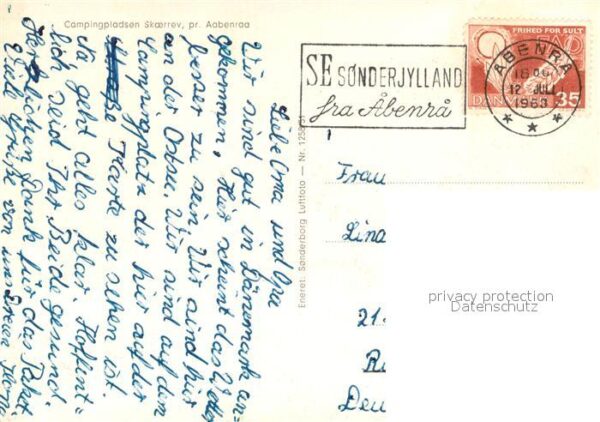 Campingpladsen Skærrev, pr. Aabenraa
Liebe Oma und Opa
Wir sind gut in Dänemark an=
gekommen, Hier scheint das Wetter
besser zu sein. Wir sind hier
an der Ostsee. Wir sind auf dem
Campingplatz der hier auf der
Karte zu sehen ist.
geht alles klar. Hoffent=
lich seid Ihr Beide gesund.
Dank für das Paket
Viele Grüße von uns
Eneret: Sønderborg Luftfoto — Nr. 1258/51
SE SØNDERJYLLAND
fra Åbenrå
FRIHED FOR SULT
ÅBENRÅ
12 JULI
1963
35
Frau
Lina
21.
privacy protection
Datenschutz